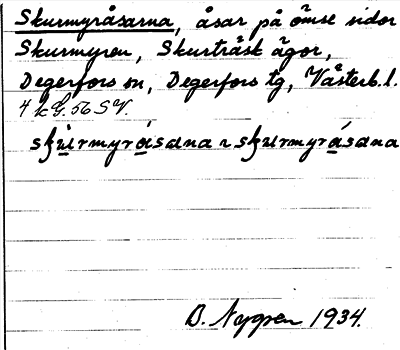 Skurmyråsarna, åsar på ömse sidor
Skurmyren, Skurträsk ägor,
Degerfors sn, Degerfors tg, Västerb. l.
4 k G. 56 S V.
B. Nygren 1934.